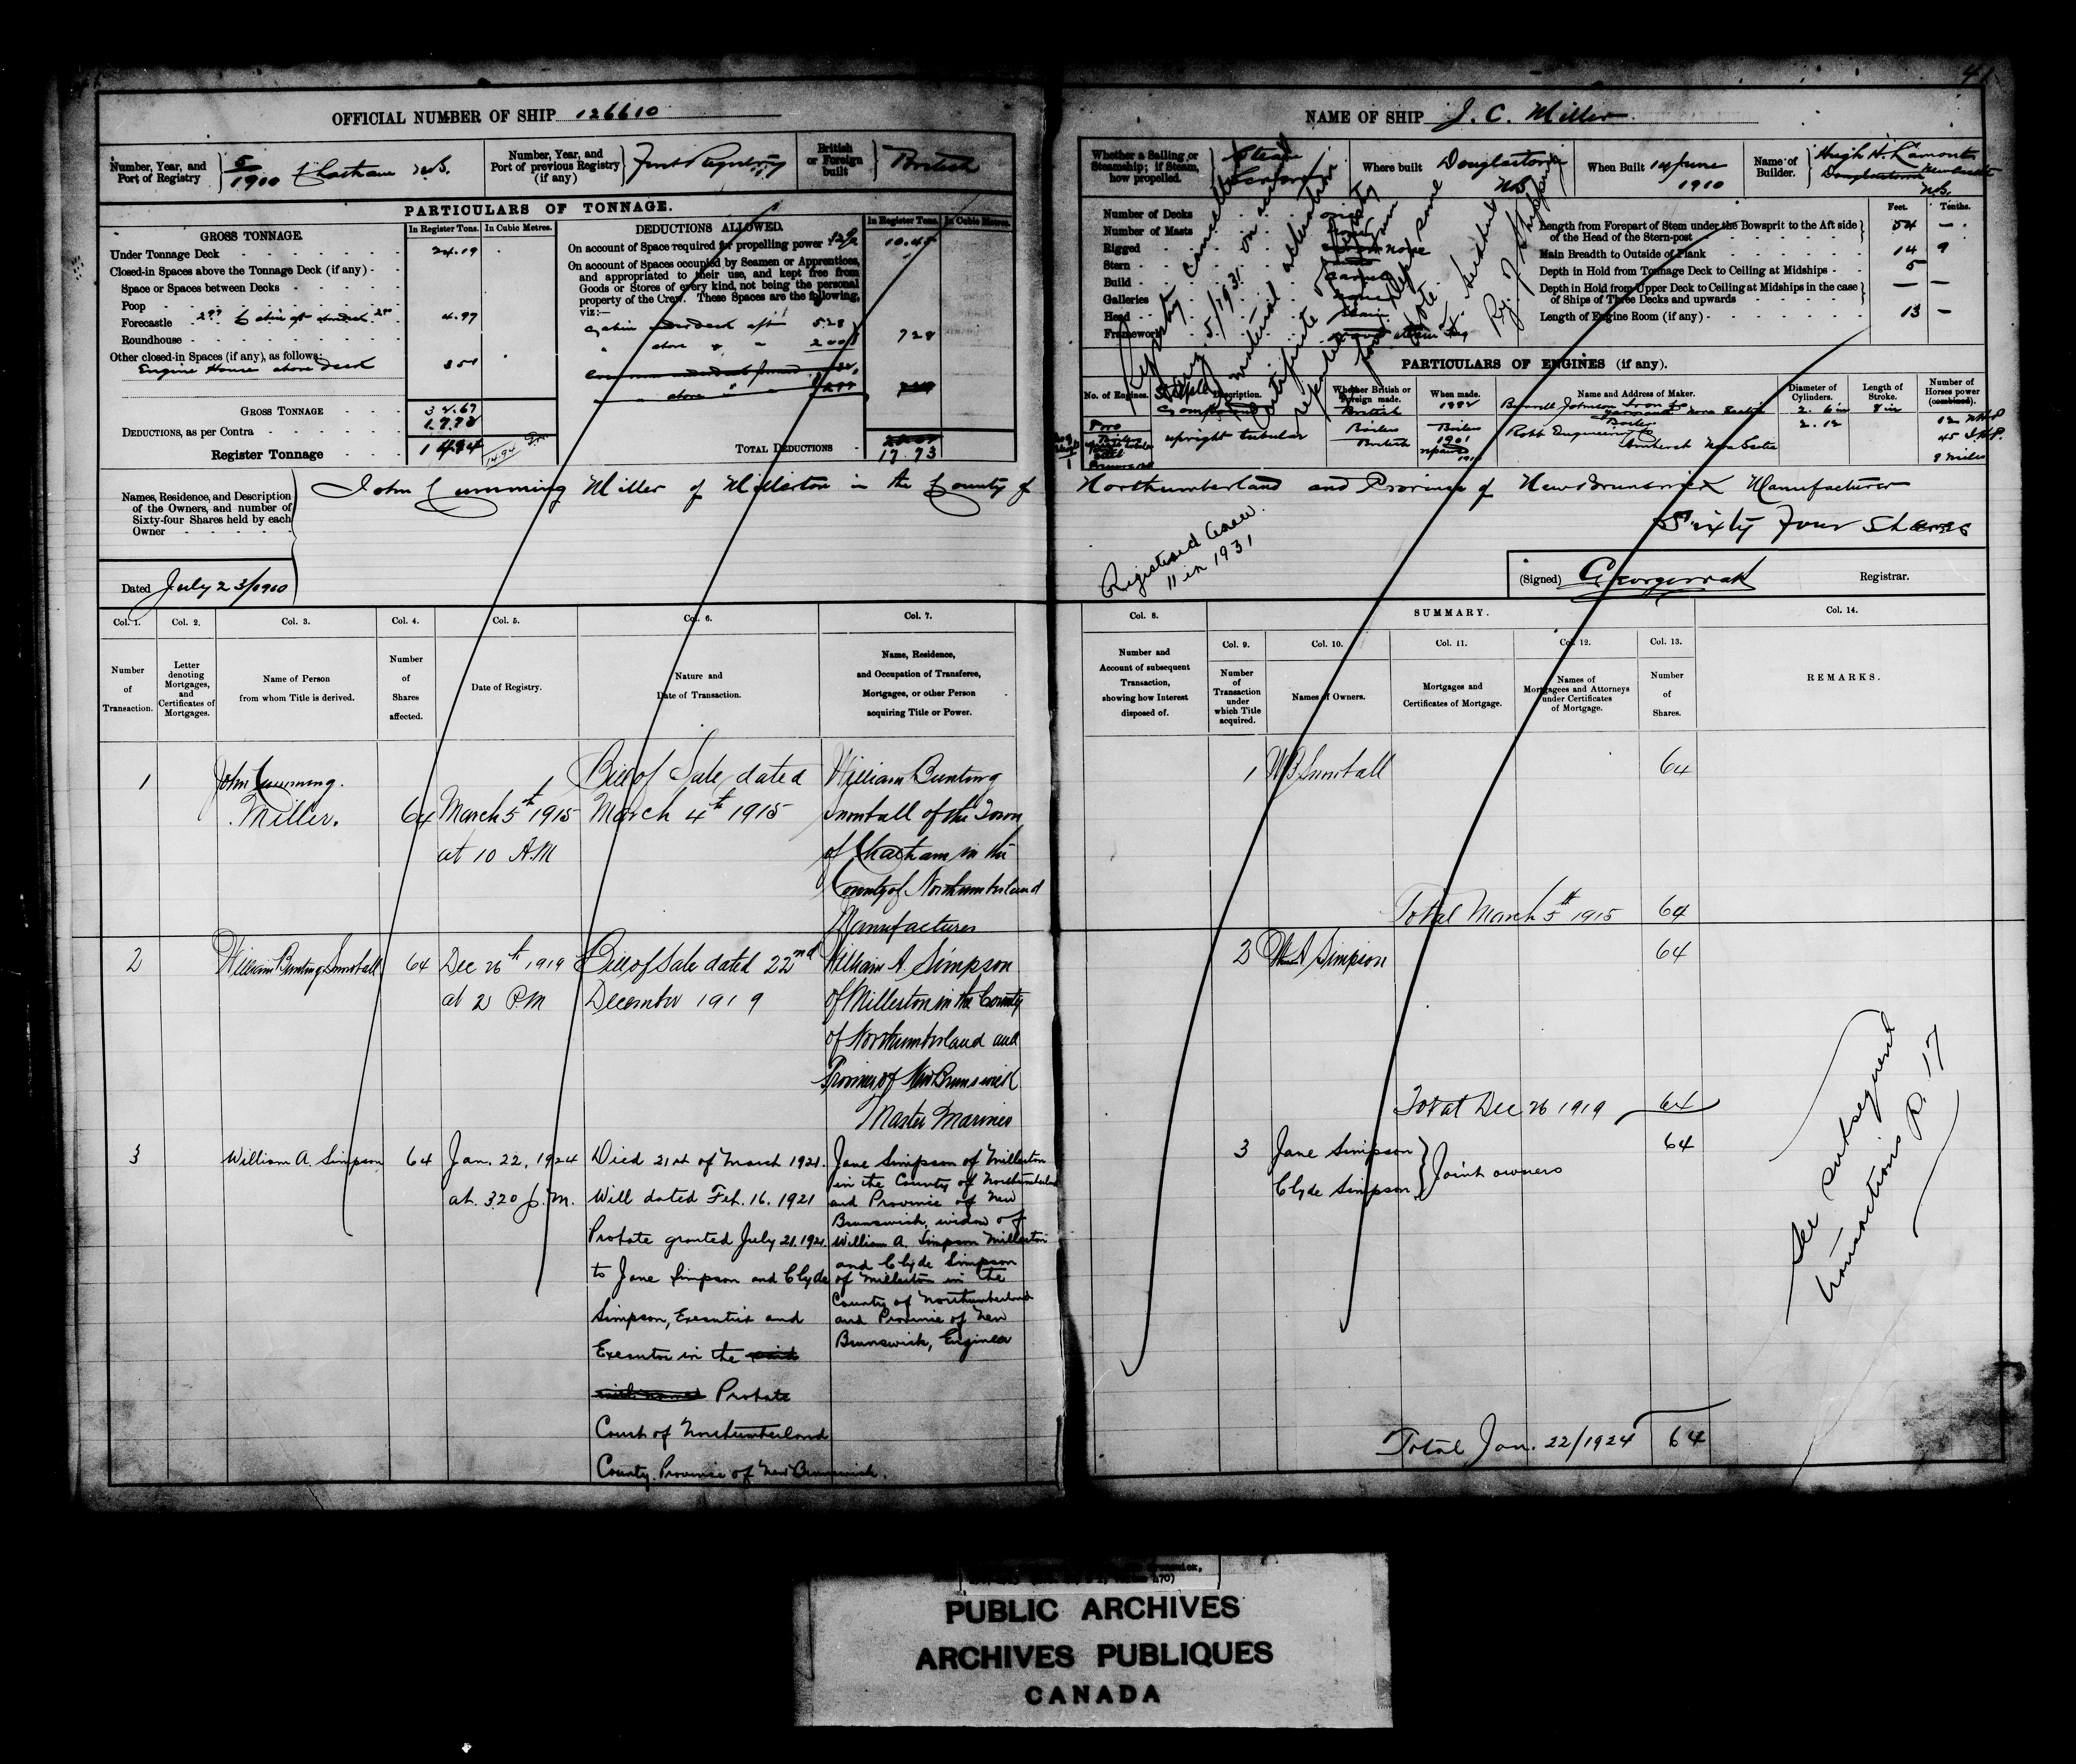 41
OFFICIAL NUMBER OF SHIP 126610
NAME OF SHIP J. C. Miller
Number, Year, and Port of Registry 5/1910 Chatham N.B.
Number, Year, and Port of previous Registry (if any) First Registry
British or Foreign built British
Whether a Sailing or Steamship; if Steam, how propelled. Steam Screw
Where built Douglastown N.B.
When Built 14 June 1910
Name of Builder. Hugh H. Lamont
Douglastown
N.B.
PARTICULARS OF TONNAGE.
GROSS TONNAGE.
In Register Tons. In Cubic Metres.
Under Tonnage Deck 24.19
Closed-in Spaces above the Tonnage Deck (if any)
Space or Spaces between Decks
Poop
Forecastle 4.97
Roundhouse
Other closed-in Spaces (if any), as follows:
Engine House above deck 3.51
GROSS TONNAGE 32.67
DEDUCTIONS, as per Contra 17.73
Register Tonnage 14.94
14.94
DEDUCTIONS ALLOWED.
In Register Tons. In Cubic Metres.
On account of Space required for propelling power 10.45
On account of Spaces occupied by Seamen or Apprentices, and appropriated to their use, and kept free from Goods or Stores of every kind, not being the personal property of the Crew. These Spaces are the following, viz:—
Cabin under deck aft 5.28
" above " " 2.00
7.28
TOTAL DEDUCTIONS 17.73
Number of Decks one
Number of Masts
Rigged none
Stern
Build
Galleries none
Head
Framework
Length from Forepart of Stem under the Bowsprit to the Aft side of the Head of the Stern-post
Feet. Tenths.
54 —
Main Breadth to Outside of Plank 14 9
Depth in Hold from Tonnage Deck to Ceiling at Midships 5
Depth in Hold from Upper Deck to Ceiling at Midships in the case of Ships of Three Decks and upwards — —
Length of Engine Room (if any) 13 —
Registry cancelled May 5/1931 on acct of material alteration
PARTICULARS OF ENGINES (if any).
No. of Engines. Description. Whether British or Foreign made. When made. Name and Address of Maker. Diameter of Cylinders. Length of Stroke. Number of Horses power (combined).
Burrell Johnson Iron Co
Yarmouth Nova Scotia
8 in
upright tubular
Boilers British
Boilers 1901
Robb Engineering Co
Amherst Nova Scotia
12 NHP
45 IHP
8 miles
Names, Residence, and Description of the Owners, and number of Sixty-four Shares held by each Owner
John Cumming Miller of Millerton in the County of Northumberland and Province of New Brunswick Manufacturer
Sixty Four Shares
Registered Anew.
11 in 1931
Dated July 23/1910
(Signed) Registrar.
Col. 1. Col. 2. Col. 3. Col. 4. Col. 5. Col. 6. Col. 7.
Number of Transaction.
Letter denoting Mortgages, and Certificates of Mortgages.
Name of Person from whom Title is derived.
Number of Shares affected.
Date of Registry.
Nature and Date of Transaction.
Name, Residence, and Occupation of Transferee, Mortgagee, or other Person acquiring Title or Power.
Col. 8. SUMMARY. Col. 14.
Col. 9. Col. 10. Col. 11. Col. 12. Col. 13.
Number and Account of subsequent Transaction, showing how Interest disposed of.
Number of Transaction under which Title acquired.
Names of Owners.
Mortgages and Certificates of Mortgage.
Names of Mortgagees and Attorneys under Certificates of Mortgage.
Number of Shares.
REMARKS.
1
John Cumming
Miller.
64
March 5th 1915
at 10 A.M
Bill of Sale, dated
March 4th 1915
William Bunting
Snowball of the Town
of Chatham in the
County of Northumberland
Manufacturer
1 W B Snowball 64
Total March 5th 1915 64
2
William Bunting Snowball
64
Dec 26th 1919
at 2 P.M
Bill of Sale dated 22nd
December 1919
William A. Simpson
of Millerton in the County
of Northumberland and
Province of New Brunswick
Master Mariner
2 Wm A Simpson 64
Total Dec 26 1919 64
3
William A. Simpson
64
Jan. 22, 1924
at. 3.20 p.m.
Died 21st of March 1921.
Will dated Feb. 16. 1921
Probate granted July 21. 1921
to Jane Simpson and Clyde
Simpson, Executrix and
Executor in the said
Probate
Court of Northumberland
County. Province of New Brunswick.
Jane Simpson of Millerton
in the County of Northumberland
and Province of New
Brunswick, widow of
William A. Simpson Millerton
and Clyde Simpson
of Millerton in the
County of Northumberland
and Province of New
Brunswick, Engineer
3 Jane Simpson
Clyde Simpson } Joint owners 64
Total Jan. 22/1924 64
See subsequent
transactions P. 17
PUBLIC ARCHIVES
ARCHIVES PUBLIQUES
CANADA